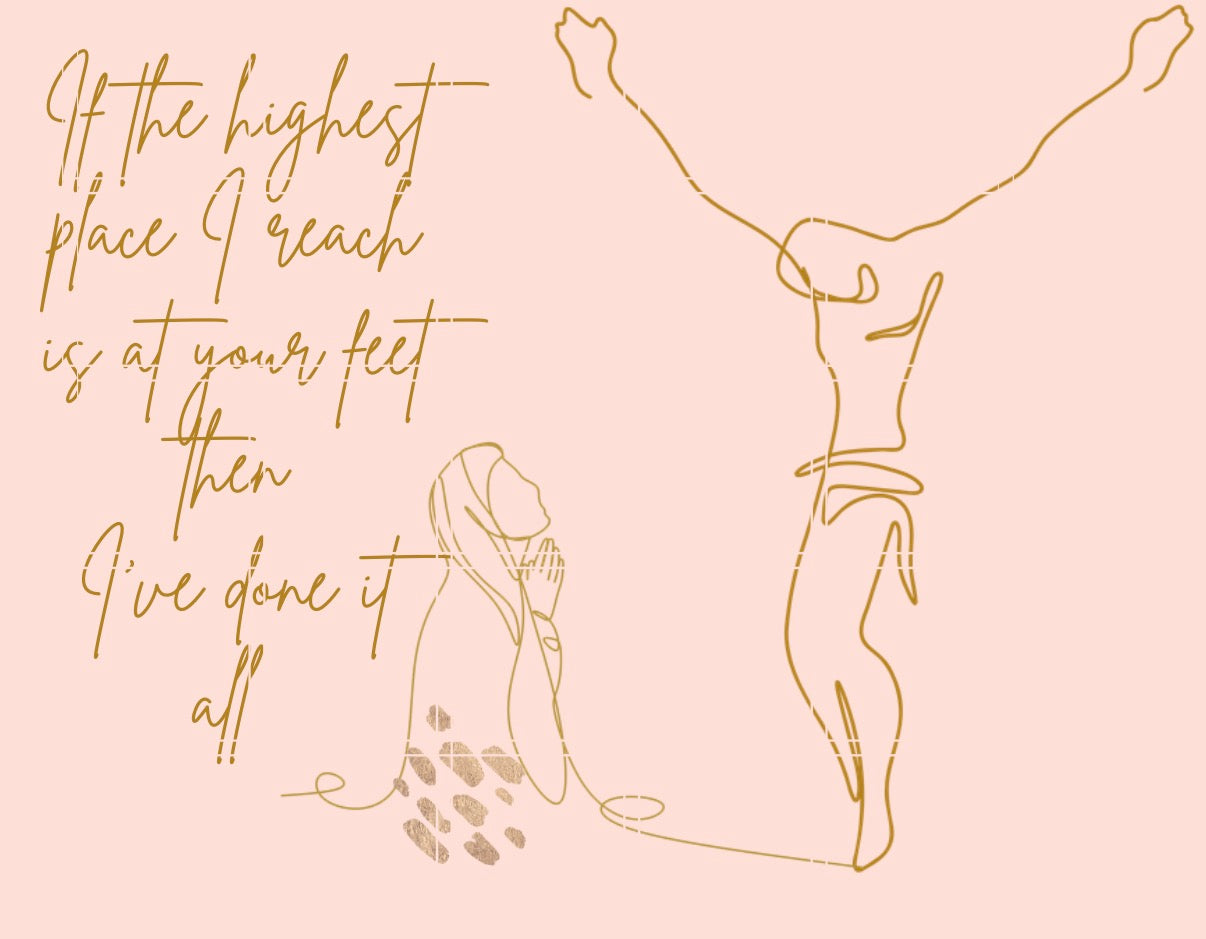 If the highest
place I reach
is at your feet
then
I've done it
all